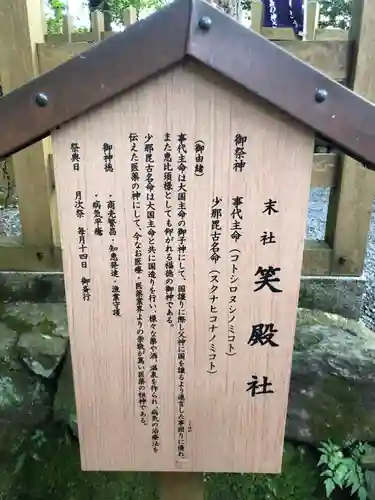 末社 笑殿社
御祭神 事代主命（コトシロヌシノミコト）
少那毘古名命（スクナヒコナノミコト）
（御由緒）
事代主命は大国主命の御子神にして、国譲りに際し父神に国を譲るよう進言した事困りに
また恵比須様としても仰がれる福徳の御神である。
少那毘古名命は大国主命と共に国造りを行い、様々な薬や酒、温泉を作られ、病気の治療法を
伝えた医薬の神にして、今なお医療・医薬業界よりの崇敬が篤い医薬の祖神である。
御神徳
・商売繁昌 知恵発達・漁業守護
・病気平癒
祭典日 月次祭 毎月十四日 御斎行
笑